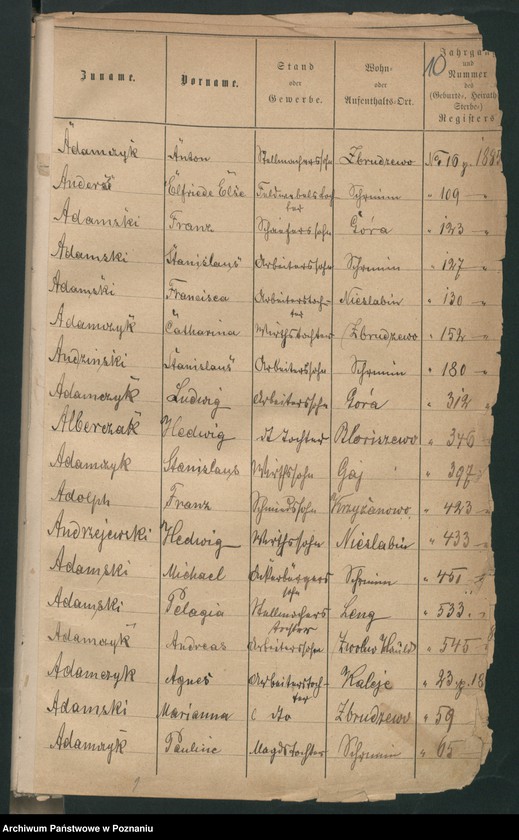 Zuname. Vorname. Stand oder Gewerbe. Wohn- oder Aufenthalts-Ort. 10 Jahrgang und Nummer des (Geburts-, Heiraths-, Sterbe-) Registers
Adamczyk Anton Stellmacherssohn Zbrudzewo No 16 p. 188
Anders Elfriede Else Feldwebelstochter Schrimm " 109 — "
Adamski Franz Schaeferssohn Góra " 123 — "
Adamski Stanislaus Arbeiterssohn Schrimm " 127 — "
Adamski Francisca Arbeiterstochter Nieslabin " 130 — "
Adamczyk Catharina Wirthstochter Zbrudzewo " 152 — "
Andzinski Stanislaus Arbeiterssohn Schrimm " 180 — "
Adamczyk Ludwig Arbeiterssohn Góra " 312 "
Alberczak Hedwig dt Tochter " 346 "
Adamczyk Stanislaus Wirthssohn Gaj " 397
Adolph Franz Schmiedssohn Krzyżanowo " 423 —
Andrzejewski Hedwig Wirthssohn Nieslabin " 433 —
Adamski Michael Ackerbürgers sohn Schrimm " 451
Adamski Pelagia Stellmachers tochter Leng " 533
Adamczyk Andreas Arbeiterssohn " 545
Adamczyk Agnes Arbeiterstochter Kaleje " 23 p. 18
Adamski Marianna dto Zbrudzewo " 59
Adamczyk Pauline Magdstochter Schrimm " 65
Archiwum Państwowe w Poznaniu